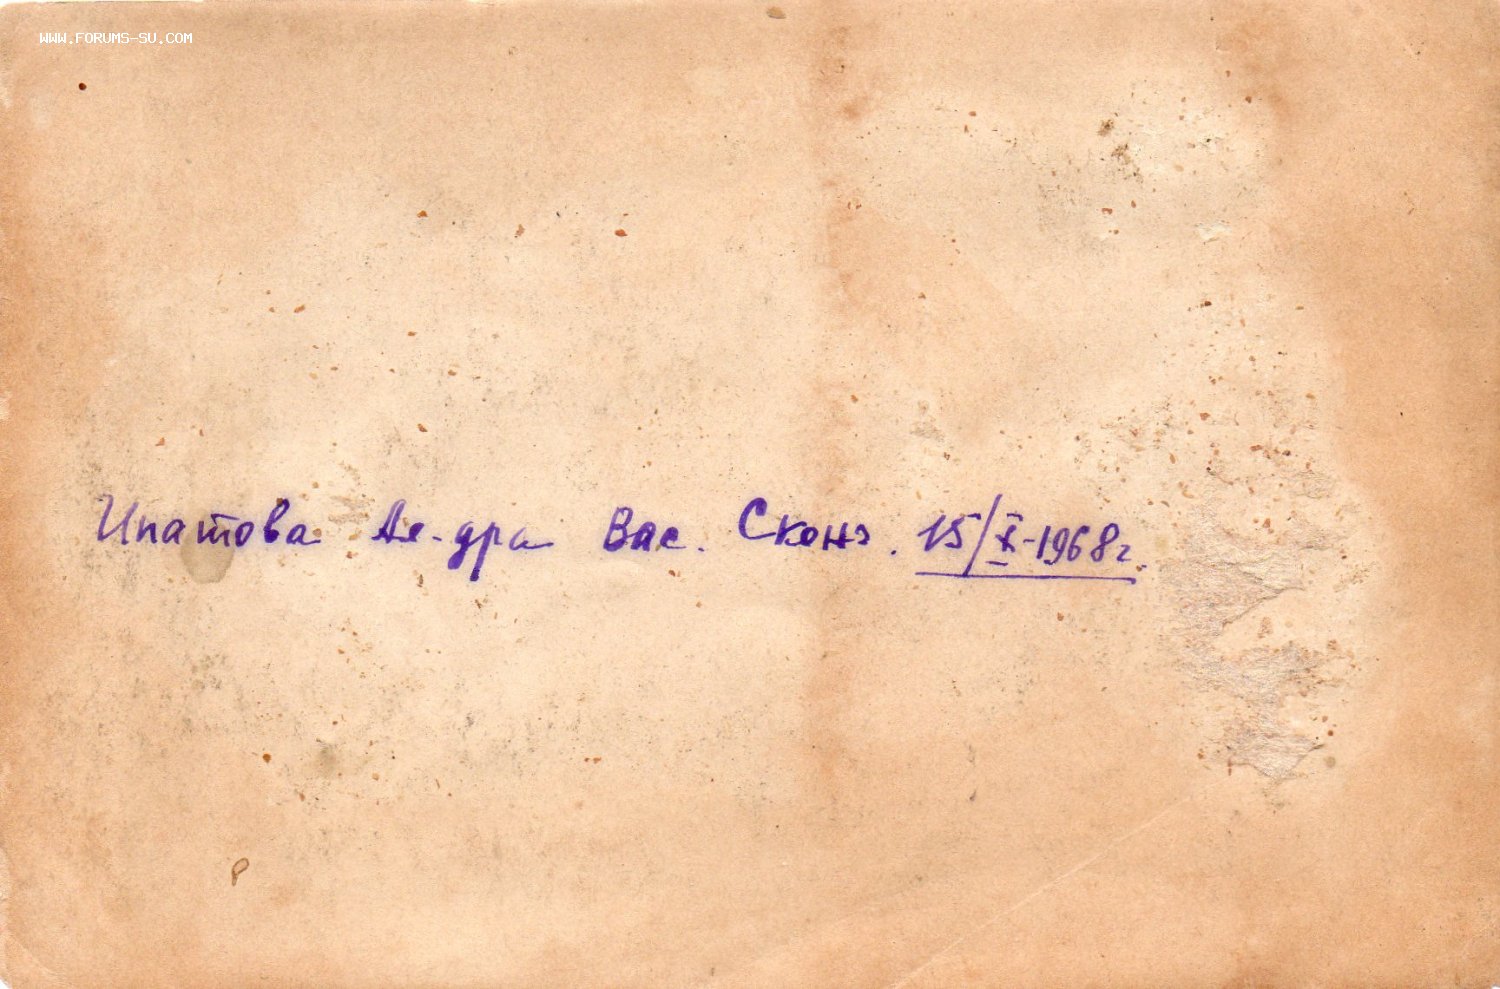 WWW.FORUMS-SU.COM
Ипатова Ал-дра Вас. Сконч. 15/X-1968г.